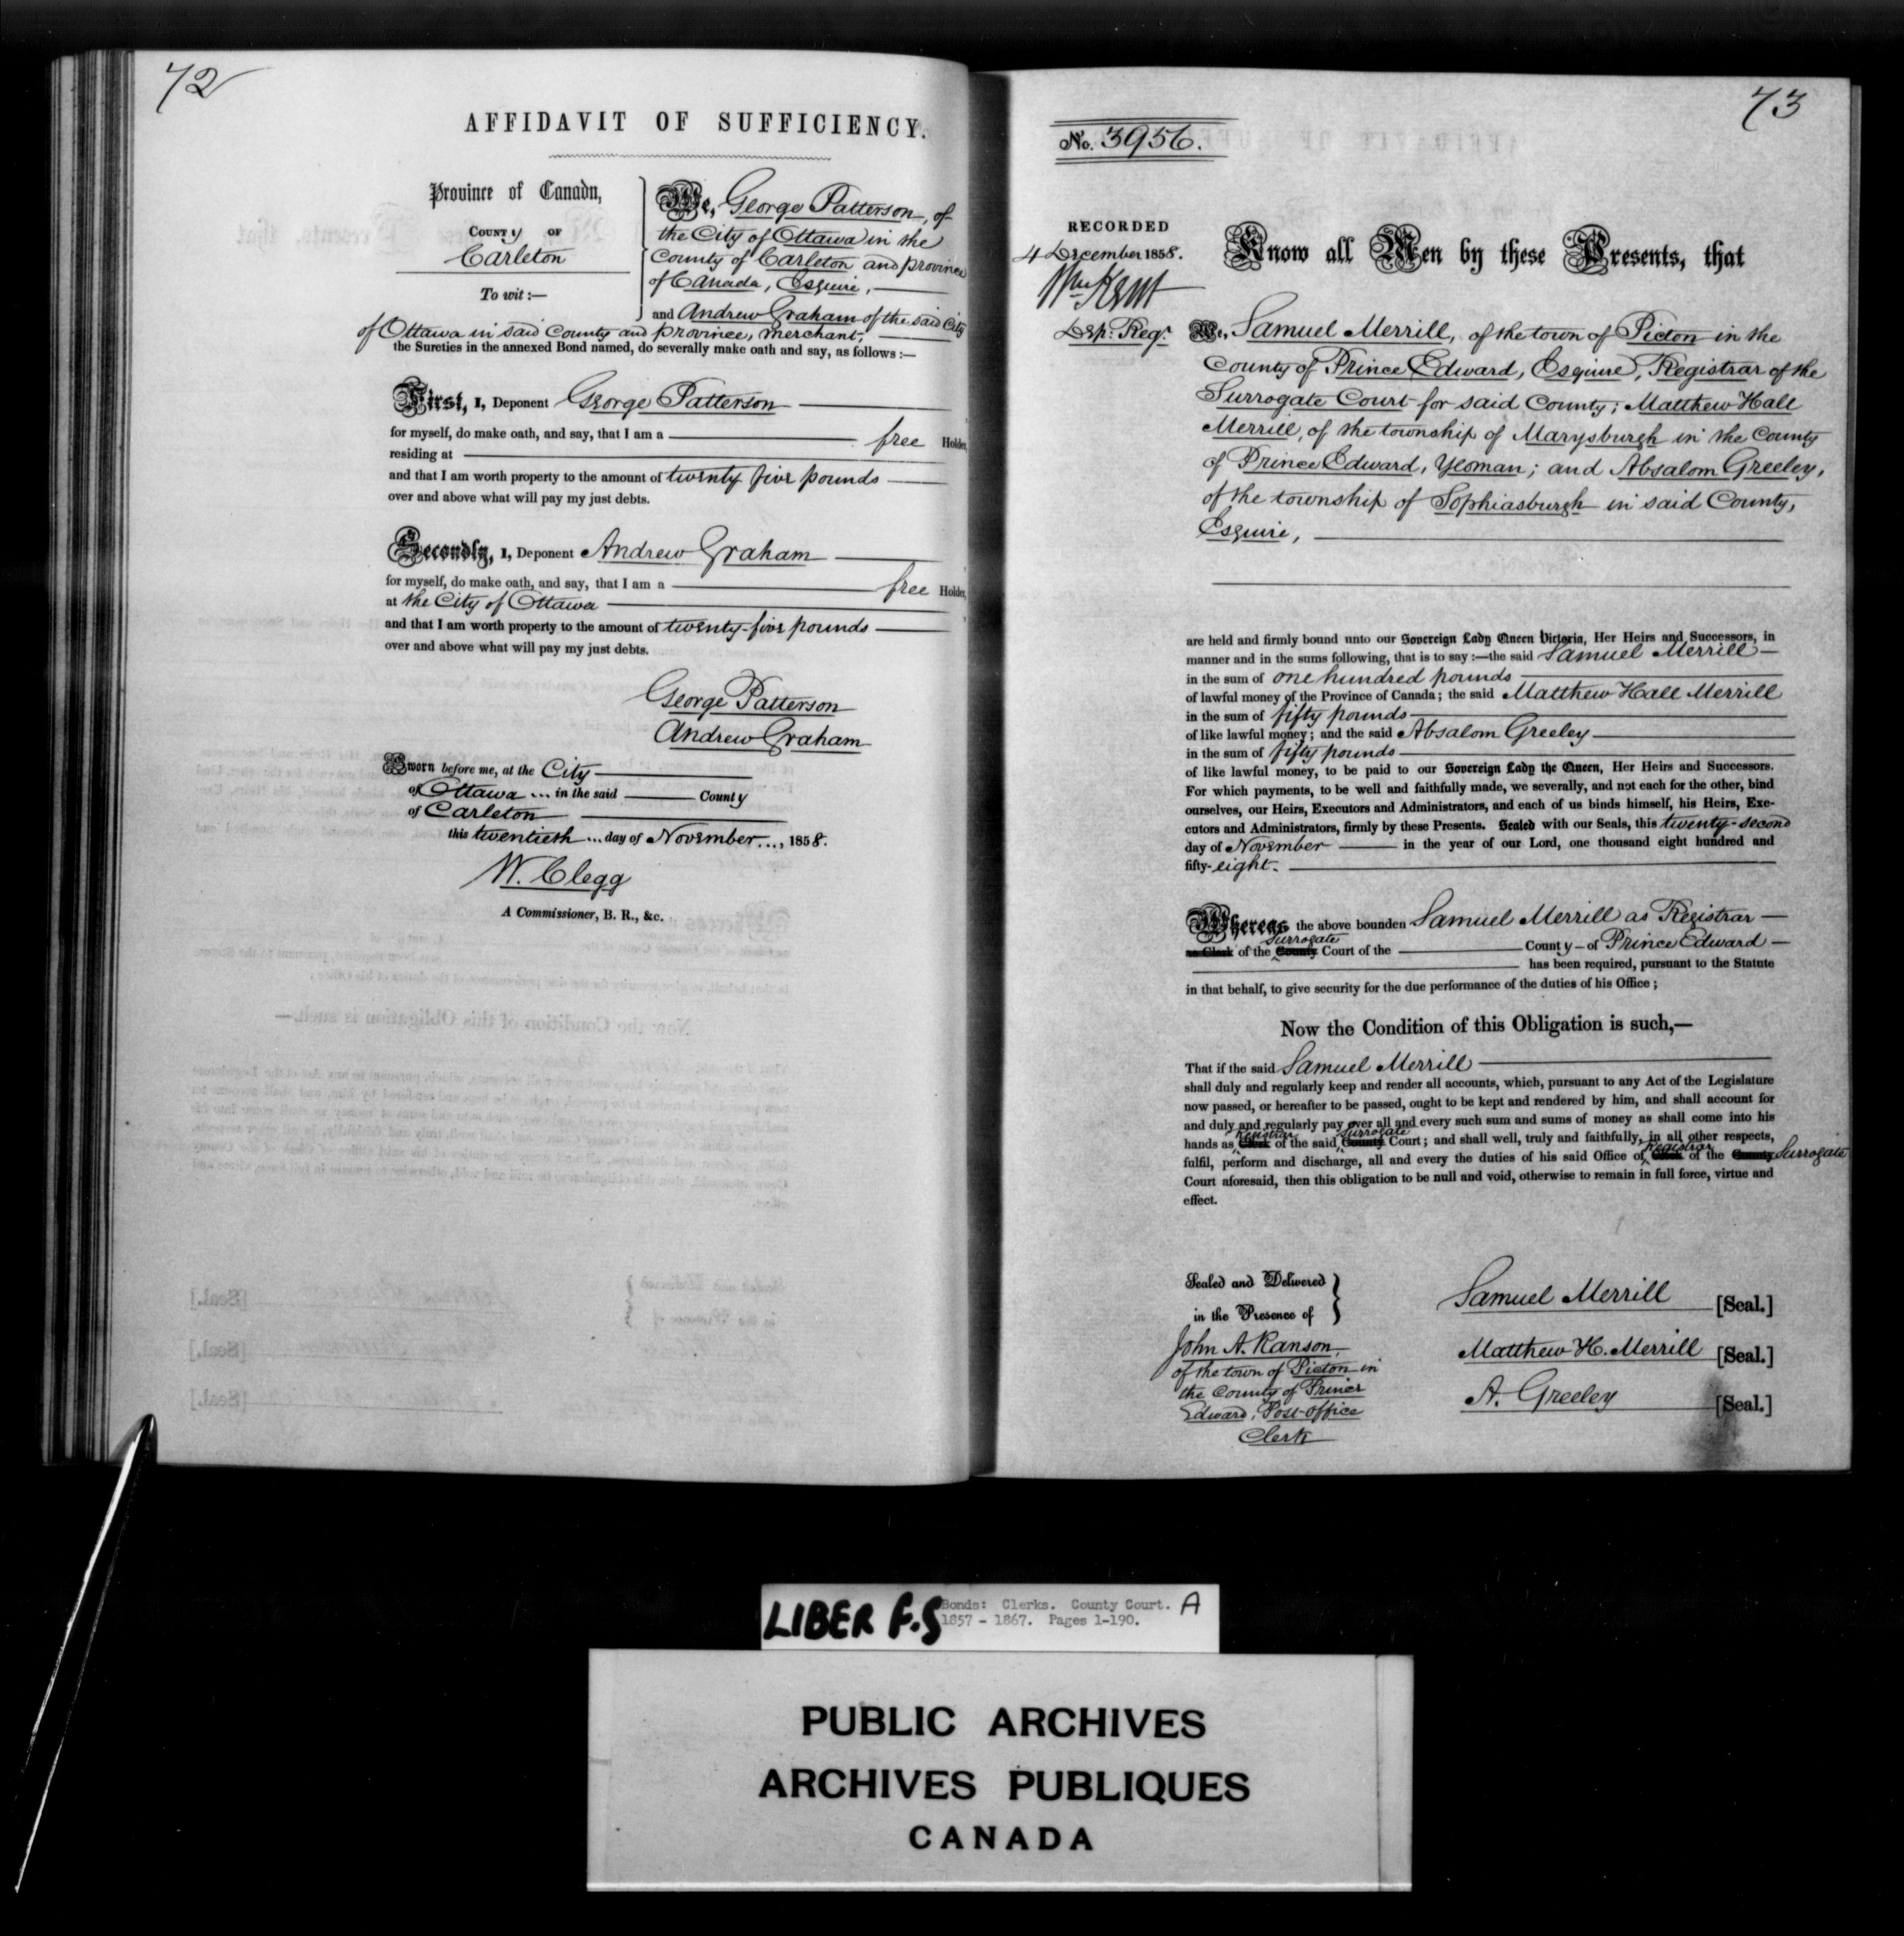 72
AFFIDAVIT OF SUFFICIENCY.
Province of Canada,
COUNTY OF
Carleton
To wit :—
We, George Patterson, of
the City of Ottawa in the
County of Carleton and province
of Canada, Esquire,
and Andrew Graham of the said City
of Ottawa in said County and province, merchant,
the Sureties in the annexed Bond named, do severally make oath and say, as follows :—
First, I, Deponent George Patterson
for myself, do make oath, and say, that I am a free Holder,
residing at
and that I am worth property to the amount of twenty five pounds
over and above what will pay my just debts.
Secondly, I, Deponent Andrew Graham
for myself, do make oath, and say, that I am a free Holder,
at the City of Ottawa
and that I am worth property to the amount of twenty-five pounds
over and above what will pay my just debts.
George Patterson
Andrew Graham
Sworn before me, at the City
of Ottawa ... in the said County
of Carleton
this twentieth ... day of November ..., 1858.
W. Clegg
A Commissioner, B. R., &c.
73
No. 3956.
RECORDED
4 December 1858.
Wm Kent
Dep: Regr.
Know all Men by these Presents, that
We, Samuel Merrill, of the town of Picton in the
County of Prince Edward, Esquire, Registrar of the
Surrogate Court for said County; Matthew Hall
Merrill, of the township of Marysburgh in the County
of Prince Edward, Yeoman; and Absalom Greeley,
of the township of Sophiasburgh in said County,
Esquire,
are held and firmly bound unto our Sovereign Lady Queen Victoria, Her Heirs and Successors, in
manner and in the sums following, that is to say :—the said Samuel Merrill—
in the sum of one hundred pounds
of lawful money of the Province of Canada; the said Matthew Hall Merrill
in the sum of fifty pounds
of like lawful money; and the said Absalom Greeley
in the sum of fifty pounds
of like lawful money, to be paid to our Sovereign Lady the Queen, Her Heirs and Successors.
For which payments, to be well and faithfully made, we severally, and not each for the other, bind
ourselves, our Heirs, Executors and Administrators, and each of us binds himself, his Heirs, Exe-
cutors and Administrators, firmly by these Presents. Sealed with our Seals, this twenty-second
day of November in the year of our Lord, one thousand eight hundred and
fifty-eight.
Whereas the above bounden Samuel Merrill as Registrar—
Surrogate
as Clerk of the County Court of the County of Prince Edward—
has been required, pursuant to the Statute
in that behalf, to give security for the due performance of the duties of his Office ;
Now the Condition of this Obligation is such,—
That if the said Samuel Merrill
shall duly and regularly keep and render all accounts, which, pursuant to any Act of the Legislature
now passed, or hereafter to be passed, ought to be kept and rendered by him, and shall account for
and duly and regularly pay over all and every such sum and sums of money as shall come into his
Registrar Surrogate
hands as Clerk of the said County Court; and shall well, truly and faithfully, in all other respects,
Registrar
fulfil, perform and discharge, all and every the duties of his said Office of Clerk of the County Surrogate
Court aforesaid, then this obligation to be null and void, otherwise to remain in full force, virtue and
effect.
Sealed and Delivered
in the Presence of
John A. Ranson,
of the town of Picton in
the County of Prince
Edward, Post-office
Clerk
Samuel Merrill [Seal.]
Matthew H. Merrill [Seal.]
A. Greeley [Seal.]
LIBER F.S
Bonds: Clerks. County Court. A
1857 - 1867. Pages 1-190.
PUBLIC ARCHIVES
ARCHIVES PUBLIQUES
CANADA